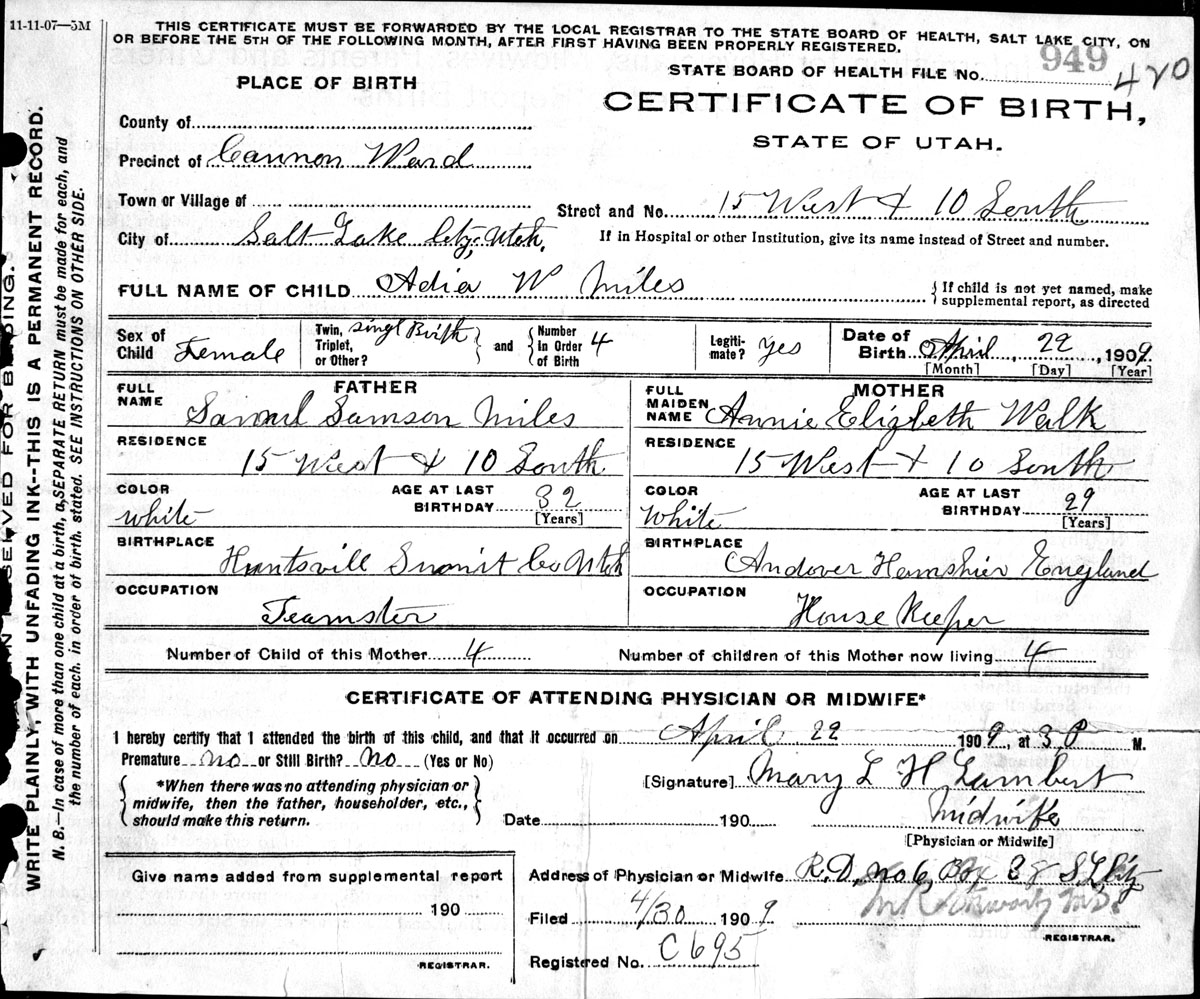 11-11-07—3M
THIS CERTIFICATE MUST BE FORWARDED BY THE LOCAL REGISTRAR TO THE STATE BOARD OF HEALTH, SALT LAKE CITY, ON
OR BEFORE THE 5TH OF THE FOLLOWING MONTH, AFTER FIRST HAVING BEEN PROPERLY REGISTERED.
STATE BOARD OF HEALTH FILE No. 949 420
PLACE OF BIRTH
CERTIFICATE OF BIRTH,
STATE OF UTAH.
County of
Precinct of Cannon Ward
Town or Village of
Street and No. 15 West + 10 South
City of Salt Lake City, Utah.
If in Hospital or other Institution, give its name instead of Street and number.
FULL NAME OF CHILD Adia W Miles
{ If child is not yet named, make supplemental report, as directed
Sex of Child Female
Twin, Triplet, or Other? singl Birth } and { Number in Order of Birth 4
Legiti-mate? Yes
Date of Birth April, 22, 1909
[Month] [Day] [Year]
FATHER
FULL NAME Samul Samson Miles
RESIDENCE 15 West + 10 South
COLOR white
AGE AT LAST BIRTHDAY 32
[Years]
BIRTHPLACE Huntsvill Sumit Co Utah
OCCUPATION Teamster
MOTHER
FULL MAIDEN NAME Annie Elizbeth Walk
RESIDENCE 15 West + 10 South
COLOR White
AGE AT LAST BIRTHDAY 29
[Years]
BIRTHPLACE Andover Hamshier England
OCCUPATION House Keeper
Number of Child of this Mother 4
Number of children of this Mother now living 4
CERTIFICATE OF ATTENDING PHYSICIAN OR MIDWIFE*
I hereby certify that I attended the birth of this child, and that it occurred on April 22 1909, at 3 P M.
Premature no or Still Birth? No (Yes or No)
{ *When there was no attending physician or midwife, then the father, householder, etc., should make this return. }
[Signature] Mary L H Lambert
Date 190 Midwife
[Physician or Midwife]
Give name added from supplemental report
190
REGISTRAR.
Address of Physician or Midwife R.D. no 6, Box 38 S L City
Filed 4/30 1909
REGISTRAR.
Registered No. C 695
WRITE PLAINLY, WITH UNFADING INK--THIS IS A PERMANENT RECORD.
N. B.—In case of more than one child at a birth, a SEPARATE RETURN must be made for each, and
the number of each, in order of birth, stated. SEE INSTRUCTIONS ON OTHER SIDE.